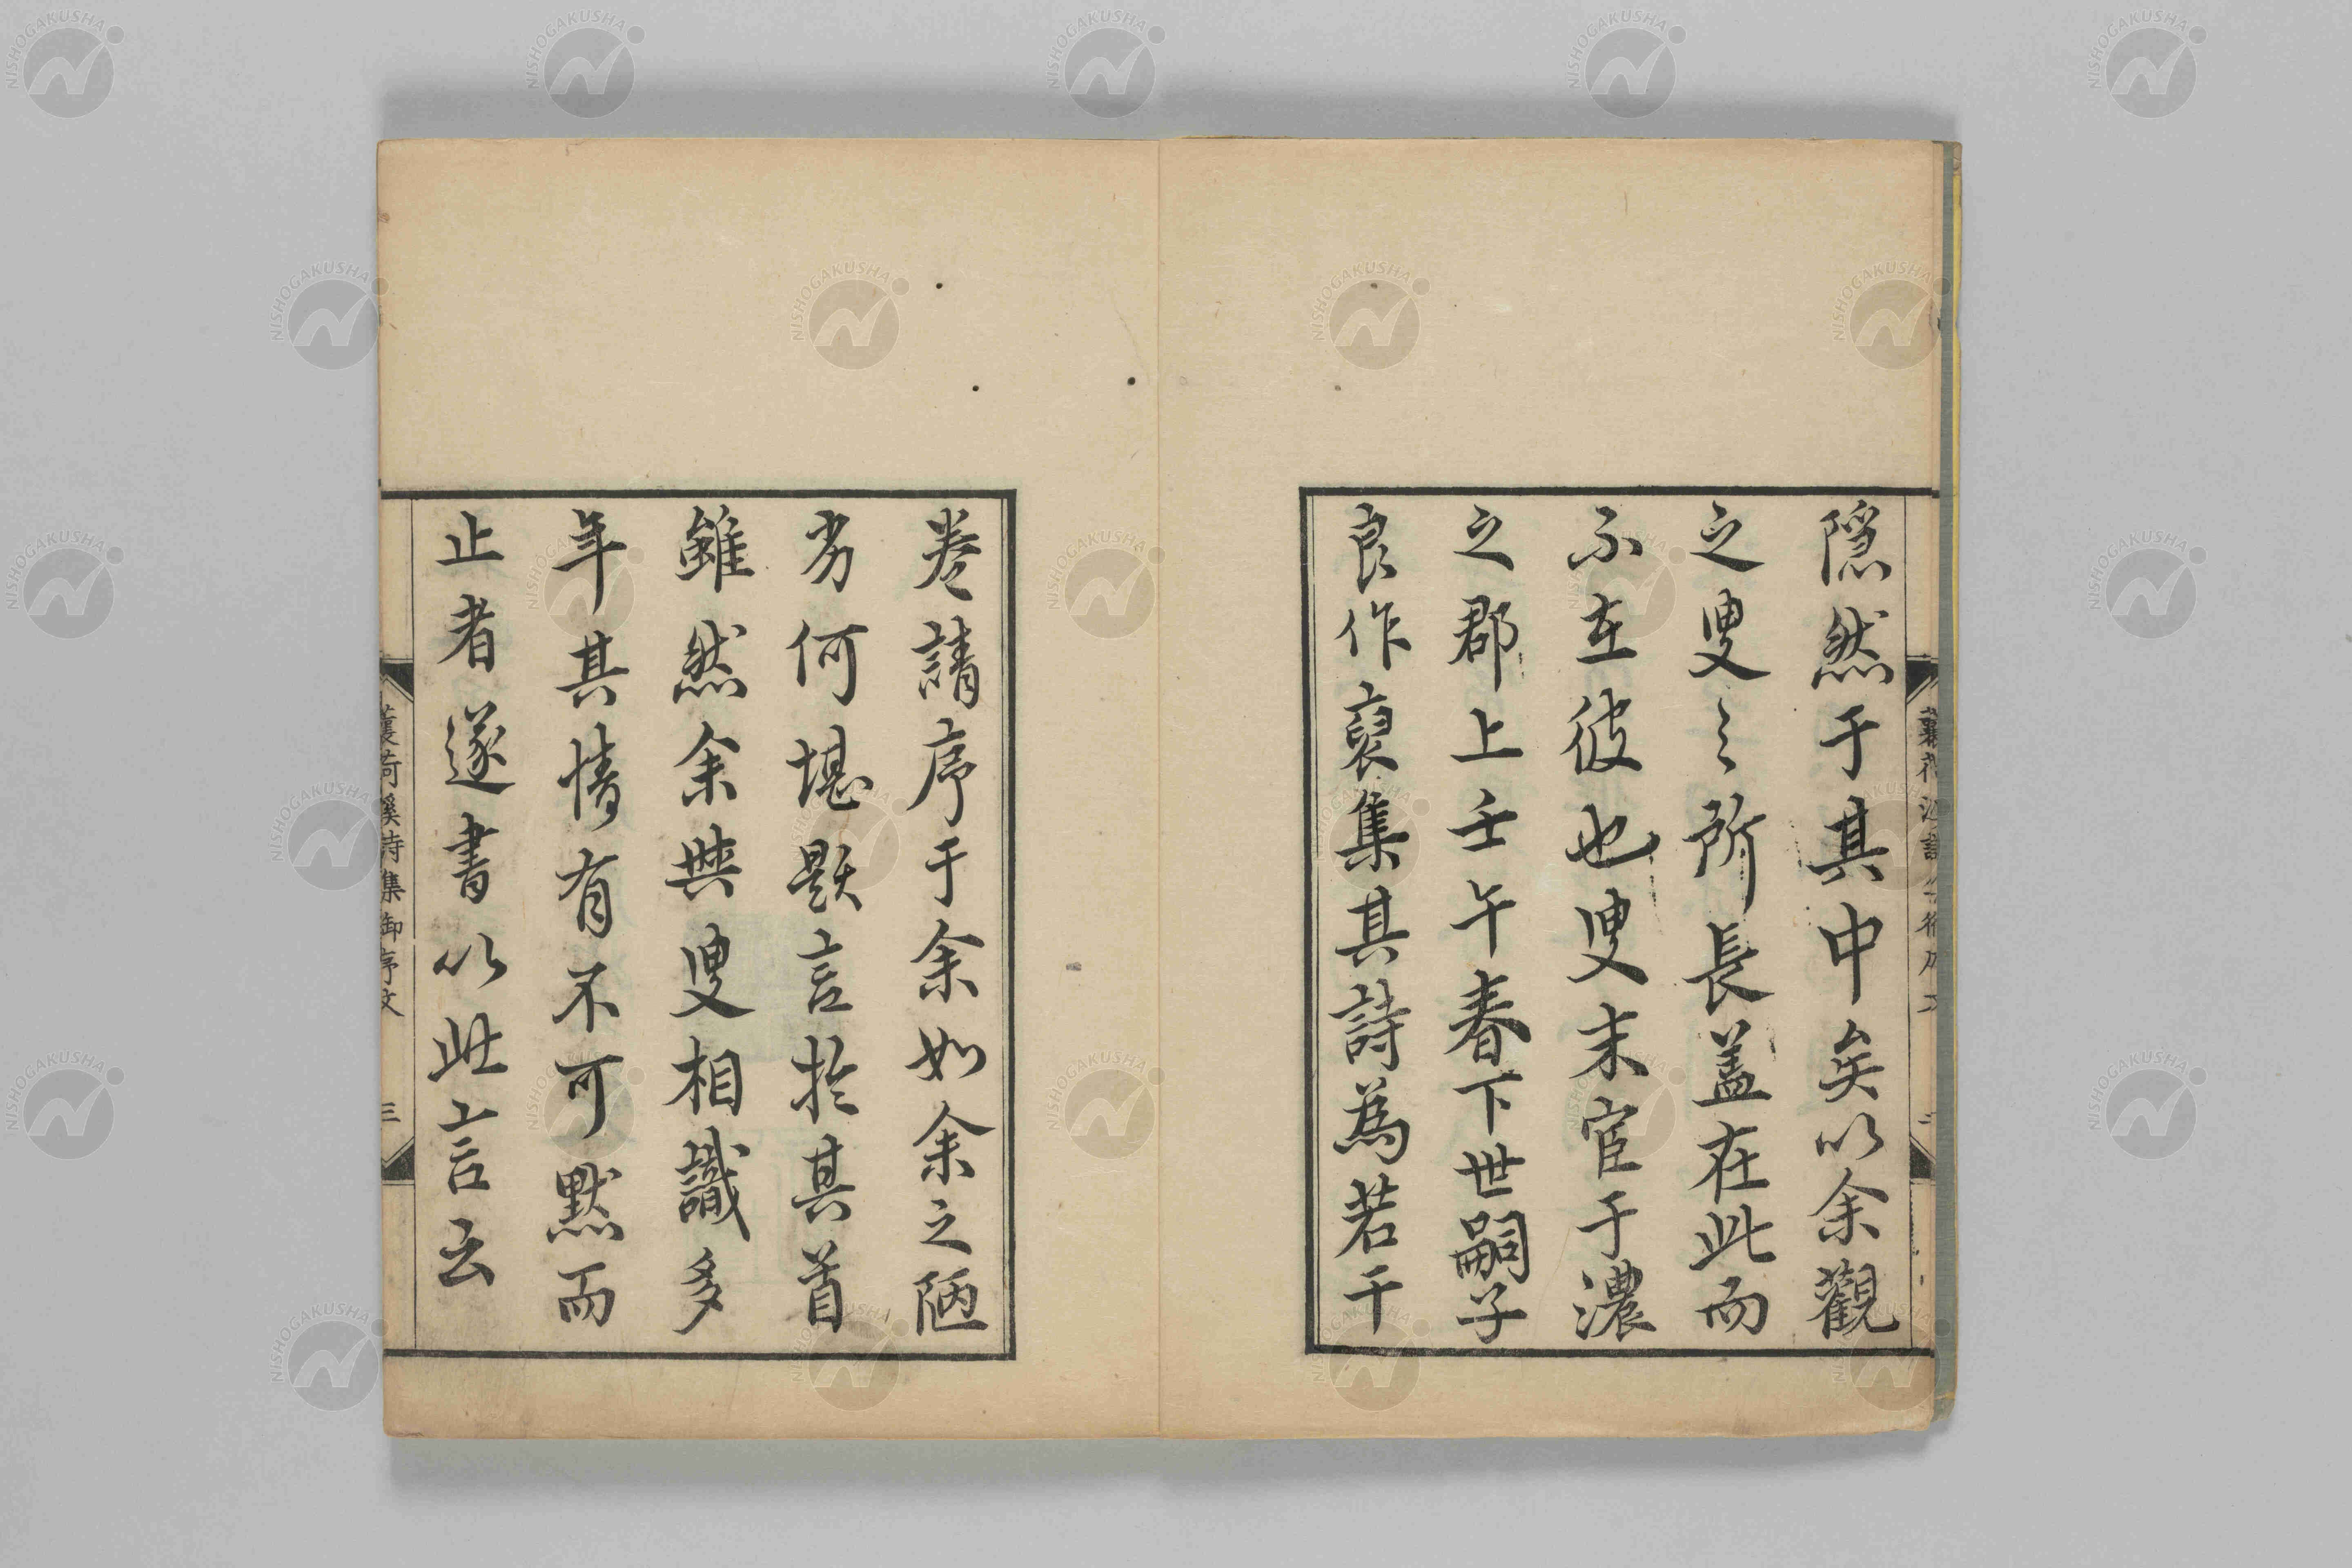 隠然于其中矣以余觀
之叟々所長盖在此而
不在彼也叟末宦于濃
之郡上壬午春下世嗣子
良作裒集其詩為若干
卷請序于余如余之陋
劣何堪題言於其首
雖然余與叟相識多
年其情有不可黙而
止者遂書以此言云
詩集御序文
三
NISHOGAKUSHA